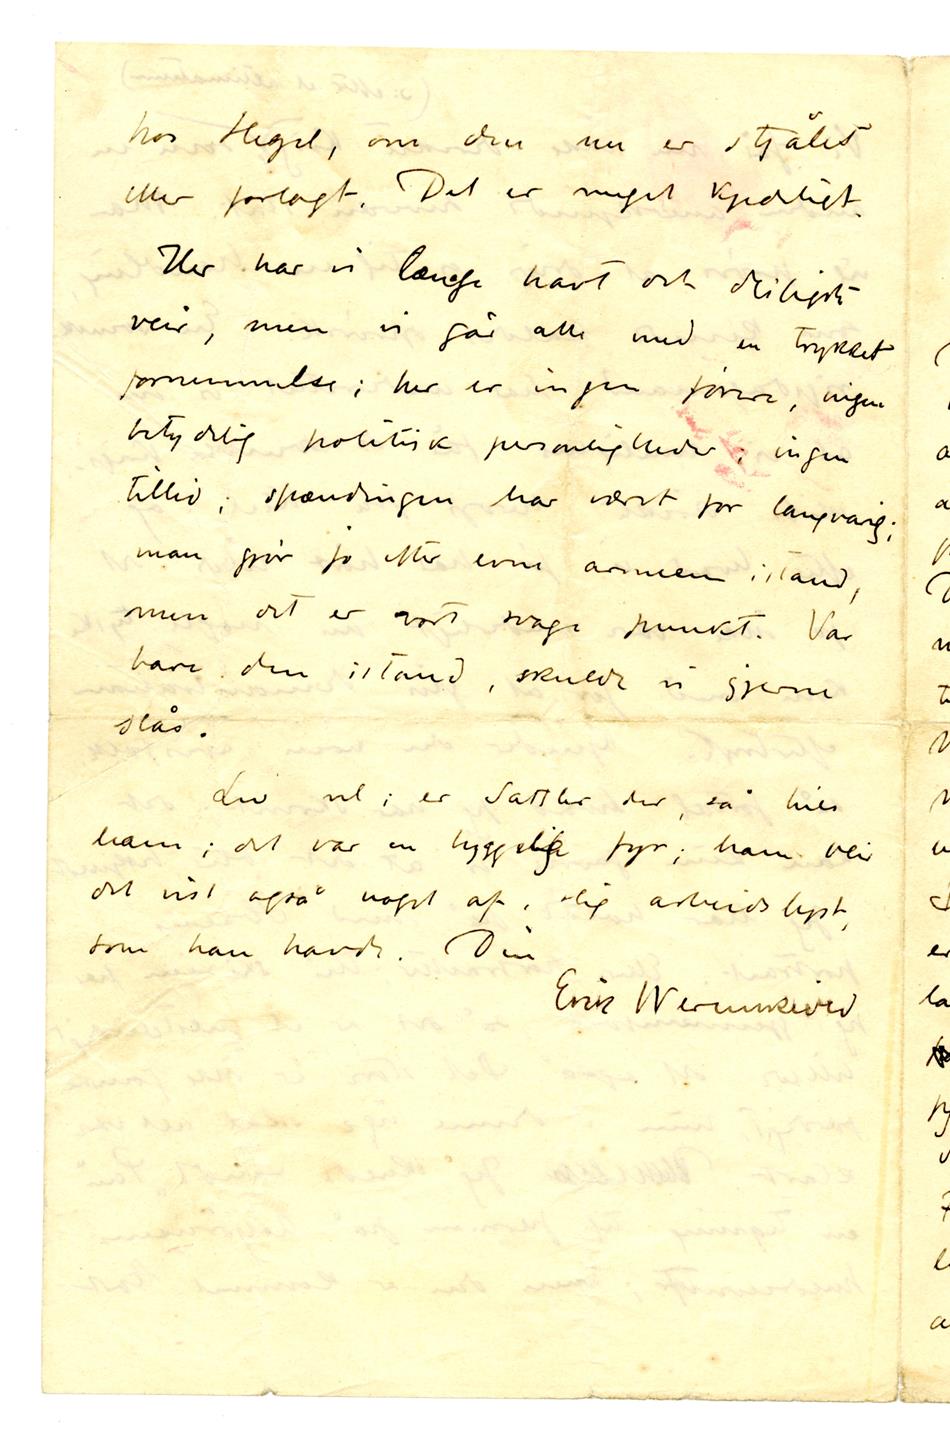 hos Hegel, om den nu er stjålet
eller forlagt. Det er meget kjedeligt.
Her har vi længe havt det deiligste
veir, men vi går alle med en trykket
fornemmelse; her er ingen förere, ingen
betydelig politisk personligheder; ingen
tillid; spændingen har været for langvarig;
man gjör jo efter evne armeen istand,
men det er vort svage punkt. Var
bare den istand, skulde vi gjerne
slås.
Lev vel; er Sattler der, så hils
ham; det var en hyggelig fyr; ham veir
det vist også noget af, slig arbeidslyst,
som han havde. Din
Erik Werenskiold